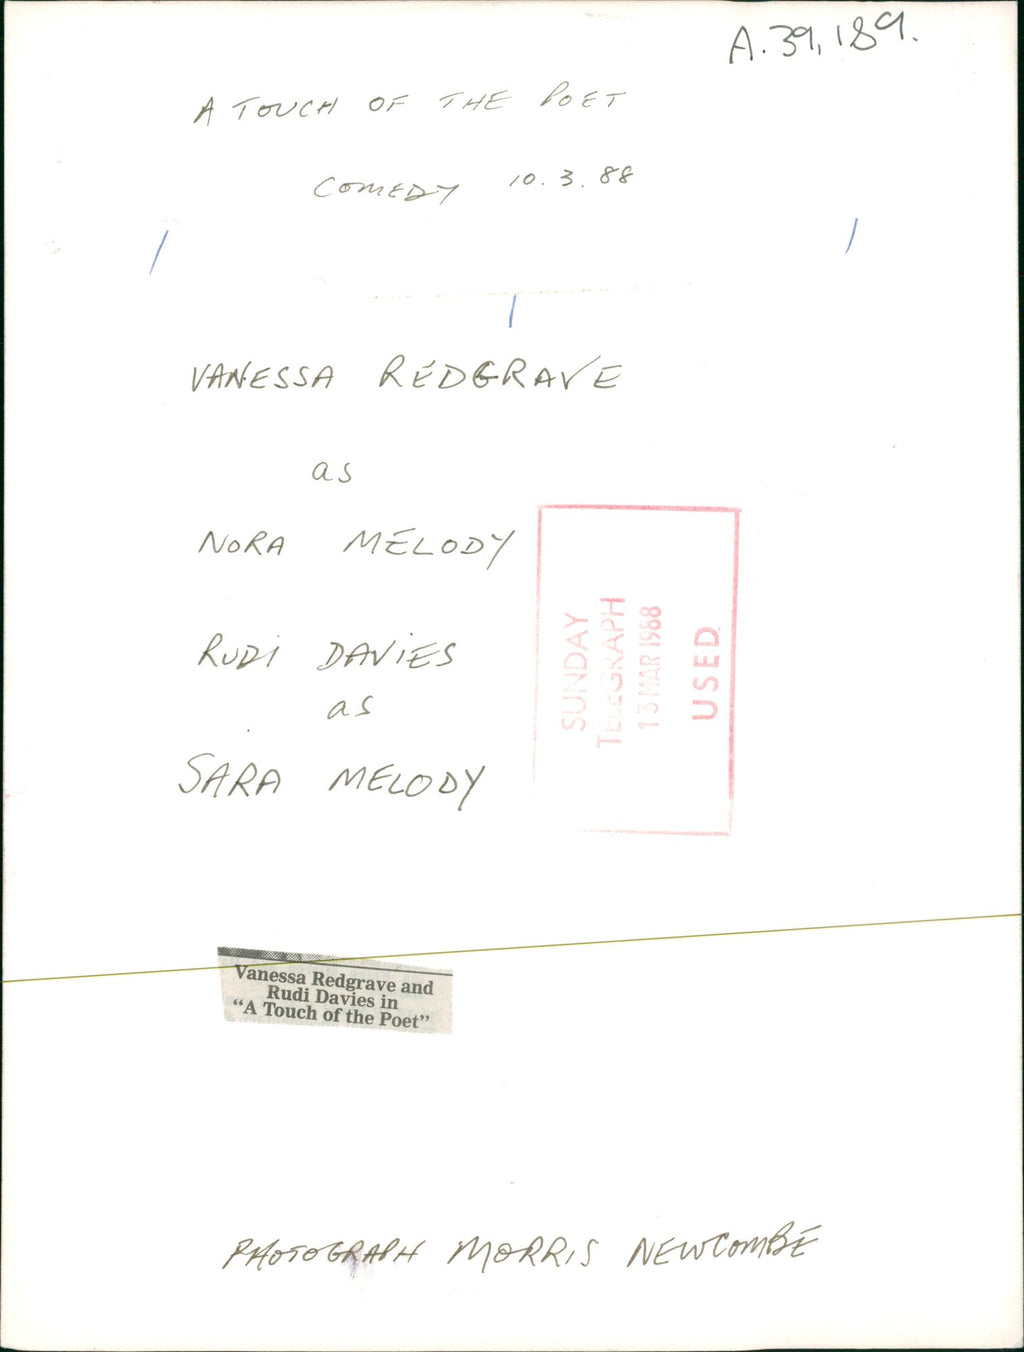 A.39,189.
A TOUCH OF THE POET
COMEDY 10.3.88
VANESSA REDGRAVE
as
NORA MELODY
RUDI DAVIES
as
SARA MELODY
SUNDAY
TELEGRAPH
13 MAR 1988
USED
Vanessa Redgrave and
Rudi Davies in
“A Touch of the Poet”
PHOTOGRAPH MORRIS NEWCOMBE